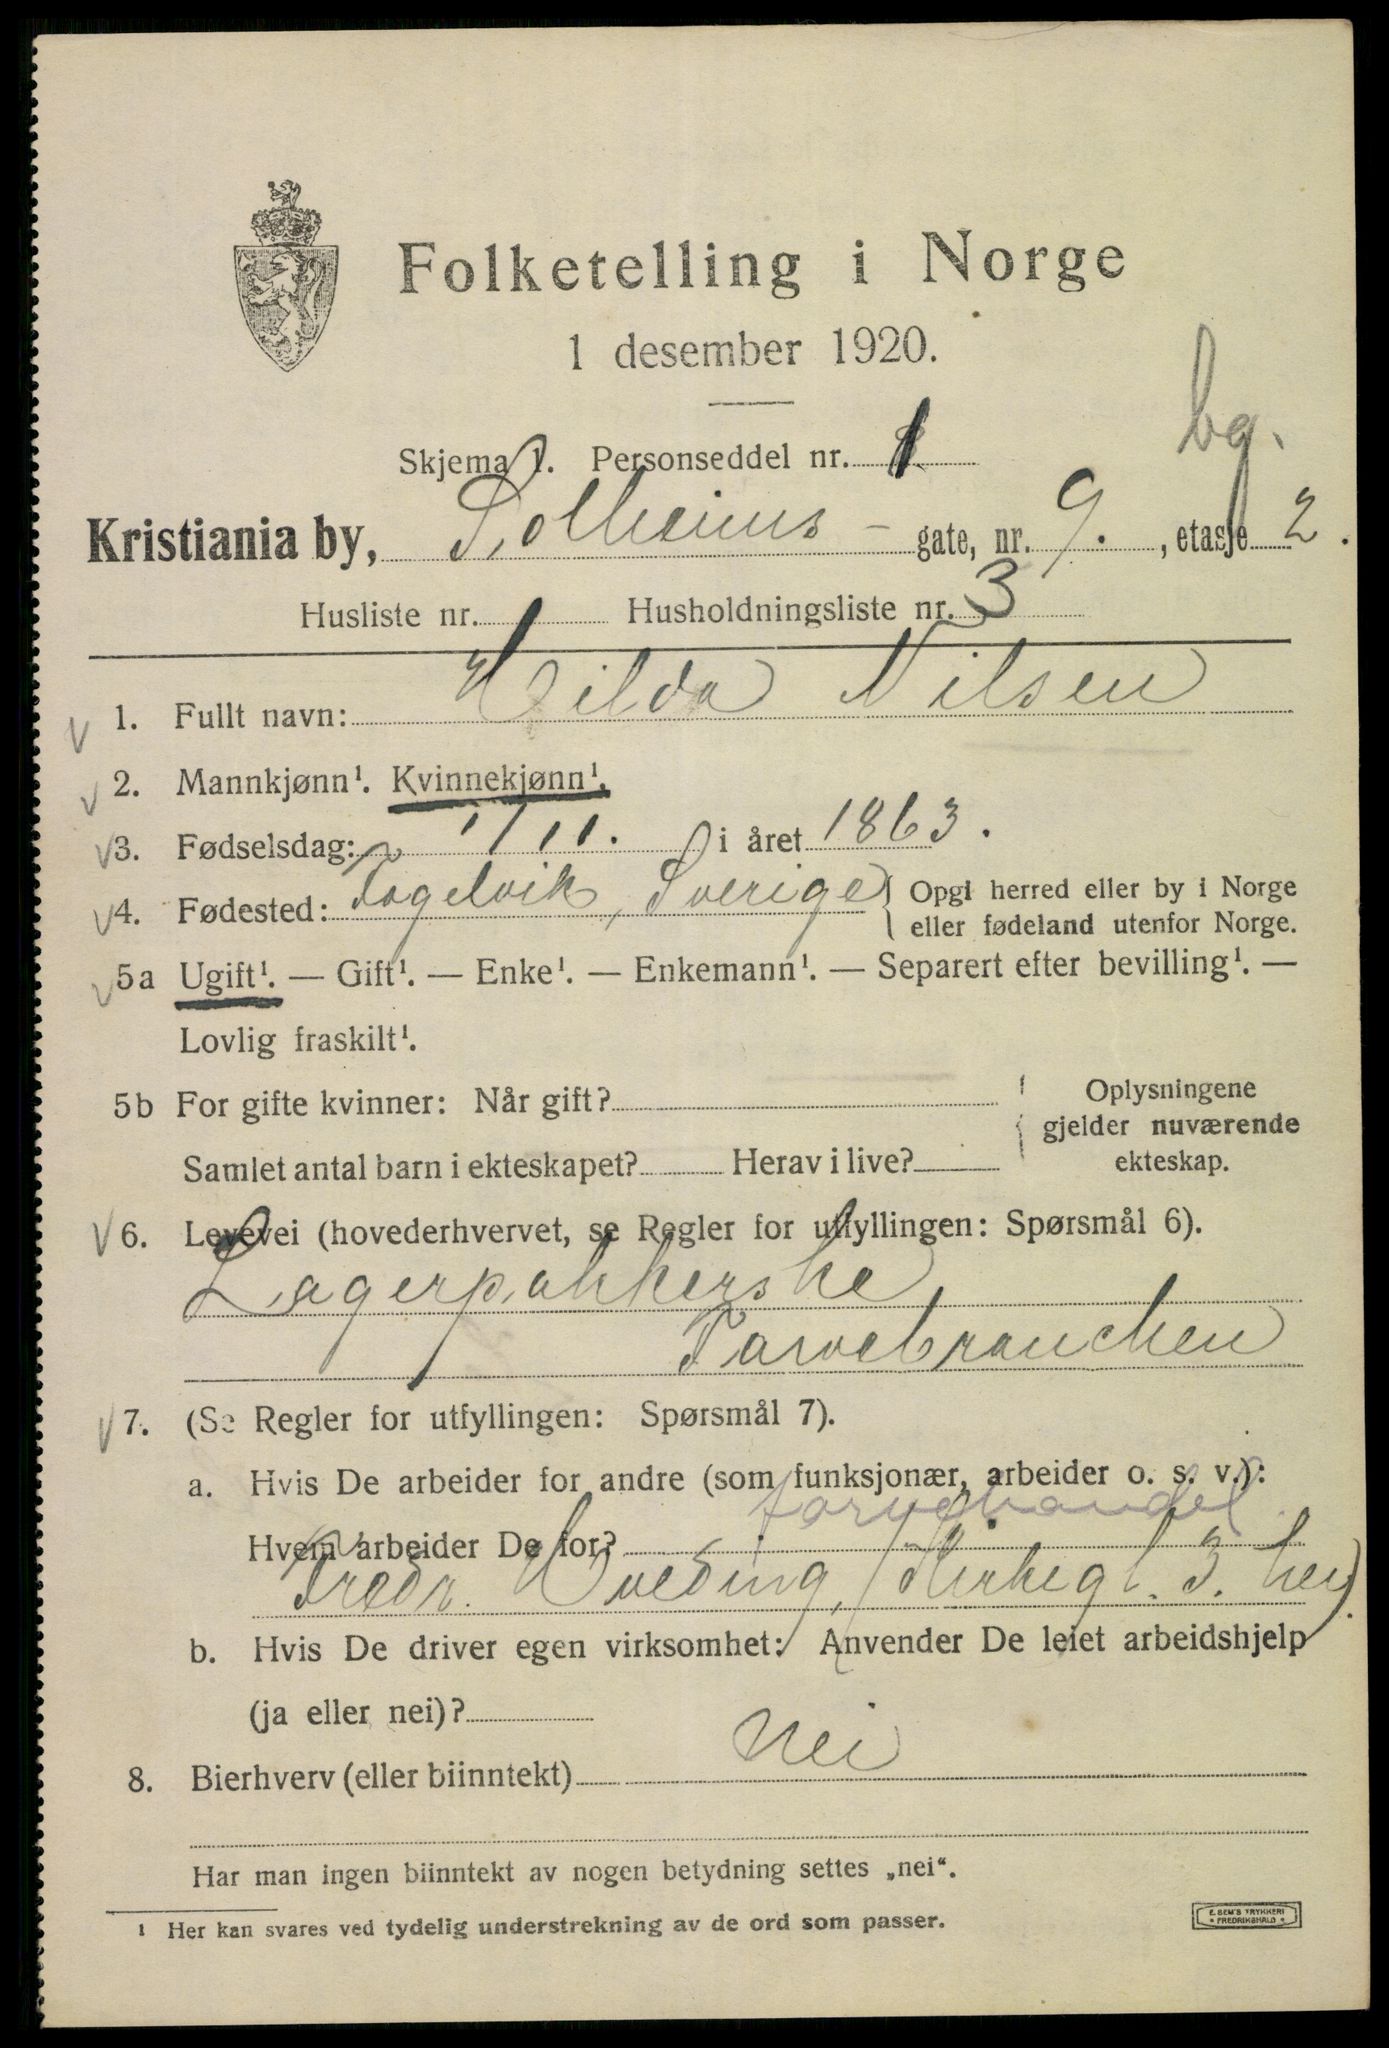 Folketelling i Norge
1 desember 1920.
bg.
Skjema 1. Personseddel nr. 1
Kristiania by, Solheims - gate, nr. 9. , etasje 2.
Husliste nr. 1 Husholdningsliste nr. 3
1. Fullt navn: Hilda Nilsen
2. Mannkjønn¹. Kvinnekjønn¹.
3. Fødselsdag: 1/11. i året 1863.
4. Fødested: Fogelvik, Sverige { Opgi herred eller by i Norge
eller fødeland utenfor Norge.
5a Ugift¹. — Gift¹. — Enke¹. — Enkemann¹. — Separert efter bevilling¹. —
Lovlig fraskilt¹.
5b For gifte kvinner: Når gift? { Oplysningene
gjelder nuværende
ekteskap.
Samlet antal barn i ekteskapet? Herav i live?
6. Levevei (hovederhvervet, se Regler for utfyllingen: Spørsmål 6).
Lagerpakkerske
Farvebranchen
7. (Se Regler for utfyllingen: Spørsmål 7).
a. Hvis De arbeider for andre (som funksjonær, arbeider o. s. v.):
farvehandel
Hvem arbeider De for?
Fredr. Hveding, (Kirkegt. 3. her)
b. Hvis De driver egen virksomhet: Anvender De leiet arbeidshjelp
(ja eller nei)?
8. Bierhverv (eller biinntekt) Nei
Har man ingen biinntekt av nogen betydning settes „nei“.
¹ Her kan svares ved tydelig understrekning av de ord som passer.
E. SEM'S TRYKKERI
FREDRIKSHALD